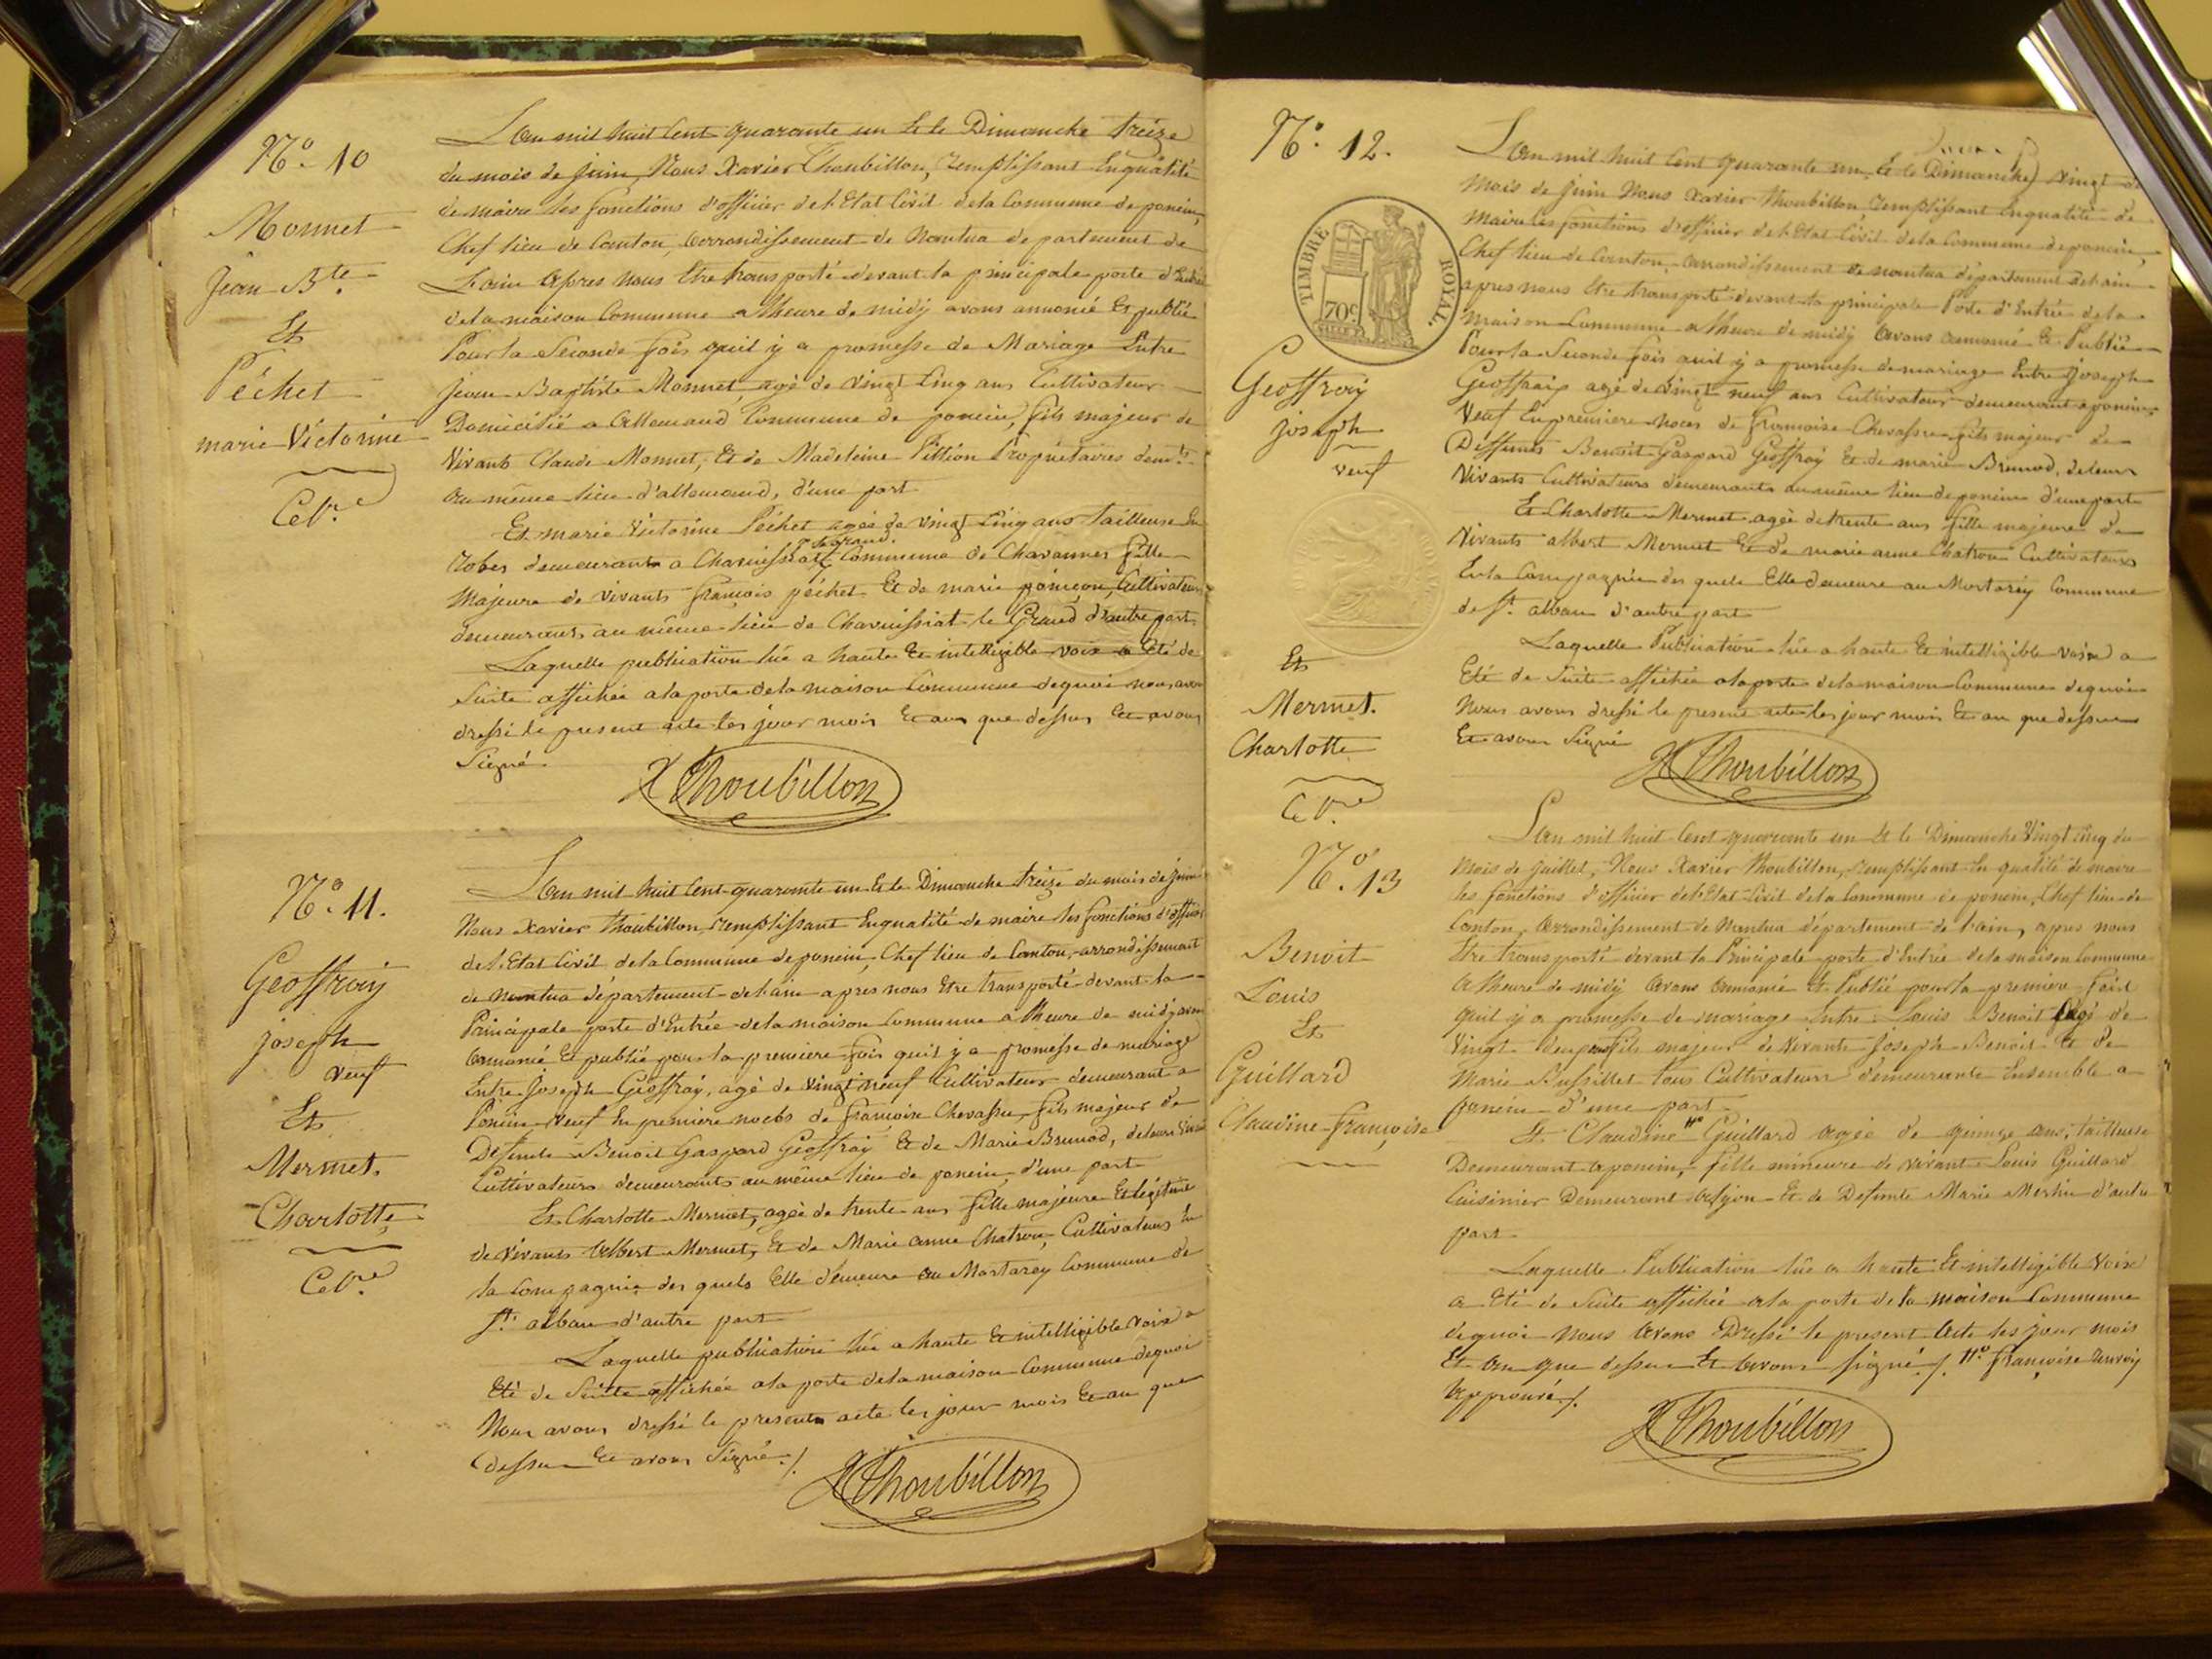 N.º 10
Monnet
Jean Bte
Et
Péchet
marie Victorine
L'an mil huit Cent quarante un Et le Dimanche treize
du mois de juin, Nous Xavier Thoubillon, remplissant Enqualité
de maire les fonctions d'officier de l'Etat Civil dela Commune de poncin,
Chef lieu de Canton, arrondissement de Nantua departement de
L'ain apres nous Etre transporté devant la principale porte d'Entrée
dela maison Commune a l'heure de midy avons annoncé Et publié
Pour la Seconde fois qu'il y a promesse de Mariage Entre
jean Baptiste Monnet, agé de vingt Cinq ans Cultivateur
Domicilié a Allemand Commune de poncin, fils majeur de
Vivants Claude Monnet, Et de Madeleine Pittion Propriétaires demts
au même lieu d'allemand, d'une part
Et marie Victorine Péchet agée de vingt Cinq ans tailleuse En
le grand.
robes demeurant a Chavuissiat Commune de Chavannes fille
Majeure de vivants françois péchet Et de marie poinçon, Cultivateurs
demeurants au même lieu de Chavuissiat le Grand d'autre part
Laquelle publication lue a haute Et intelligible voix a Eté de
Suite affichée a la porte dela maison Commune dequoi nous avons
dressé le present acte les jour mois Et an que dessus Et avons
Signé.
X Thoubillon
N.º 11.
Geoffray
joseph
veuf
Et
Mermet.
Charlotte
L'an mil huit Cent quarante un Et le Dimanche treize du mois de juin
Nous Xavier Thoubillon, remplissant Enqualité de maire les fonctions d'officier
de l'Etat Civil dela Commune de poncin, Chef lieu de Canton, arrondissement
de nantua département de l'ain apres nous Etre transporté devant la
Principale porte d'Entrée dela maison Commune a l'heure de midy avons
annoncé Et publié pour la premiere fois qu'il y a promesse de mariage
Entre Joseph Geoffray, agé de vingt neuf Cultivateur demeurant a
Poncin veuf En premiere noces de françoise Chevassu fils majeur de
Défunts Benoit Gaspard Geoffray Et de Marie Brunod, deleur vivants
Cultivateurs demeurants au même lieu de poncin, d'une part
Et Charlotte Mermet, agée de trente ans fille majeure Et légitime
de vivants Albert Mermet, Et de Marie anne Chatron, Cultivateurs En
la Compagnie des quels Elle demeure au Mortarey Commune de
St. alban d'autre part
Laquelle publication lue a haute Et intelligible voix a
Eté de Suite affichée a la porte dela maison Commune dequoi
Nous avons dressé le present acte les jour mois Et an que
dessus Et avons Signé ./.
X Thoubillon
N.º 12.
TIMBRE ROYAL.
70c
Geoffray
joseph
veuf
Et
Mermet.
Charlotte
L'an mil huit Cent quarante un, Et le Dimanche vingt du
Mois de juin Nous Xavier Thoubillon, remplissant Enqualité de
Maire les fonctions d'officier de l'Etat Civil dela Commune de poncin,
Chef lieu de Canton, arrondissement de nantua département de l'ain
apres nous Etre transporté devant la principale Porte d'Entrée dela
Maison Commune a l'heure de midy avons annoncé Et Publié
Pour la Seconde fois qu'il y a promesse de mariage Entre joseph
Geoffray agé de vingt neuf ans Cultivateur demeurant a poncin,
Veuf En premiere noces de françoise Chevassu fils majeur de
Deffunts Benoit Gaspard Geoffray Et de marie Brunod, deleur
Vivants Cultivateurs demeurants au même lieu de poncin d'une part
Et Charlotte Mermet agée de trente ans fille majeure de
Vivants albert Mermet Et de marie anne Chatron Cultivateurs
En la Compagnie des quels Elle demeure au Mortarey Commune
de St. alban d'autre part
Laquelle Publication lue a haute Et intelligible voix a
Eté de Suite affichée a la porte dela maison Commune dequoi
Nous avons dressé le present acte les jour mois Et an que dessus
Et avons Signé
X Thoubillon
N.º 13
Benoit
Louis
Et
Guillard
Claudine françoise
L'an mil huit Cent quarante un Et le Dimanche Vingt Cinq du
Mois de juillet, Nous Xavier Thoubillon, remplissant En qualité de maire
les fonctions d'officier de l'Etat Civil dela Commune de poncin, Chef lieu de
Canton, arrondissement de Nantua département de l'ain, apres nous
Etre transporté devant la Principale porte d'Entrée dela maison Commune
a l'heure de midy avons annoncé Et Publié pour la premiere fois
qu'il y a promesse de mariage Entre Louis Benoit agé de
Vingt deux ans fils majeur de Vivants Joseph Benoit Et de
Marie Bussillet tous Cultivateurs demeurants Ensemble a
poncin d'une part
Et Claudine Guillard agée de quinze ans, tailleuse
Demeurant a poncin, fille mineure de vivant Louis Guillard
Cuisinier Demeurant a Lyon Et de Defunte Marie d'autre
part
Laquelle Publication lue a haute Et intelligible Voix
a Eté de Suite affichée a la porte de la maison Commune
dequoi Nous Avons Dressé le present Acte les jour mois
Et an que dessus Et Avons signé ./. françoise renvoi
approuvé ./.
X Thoubillon